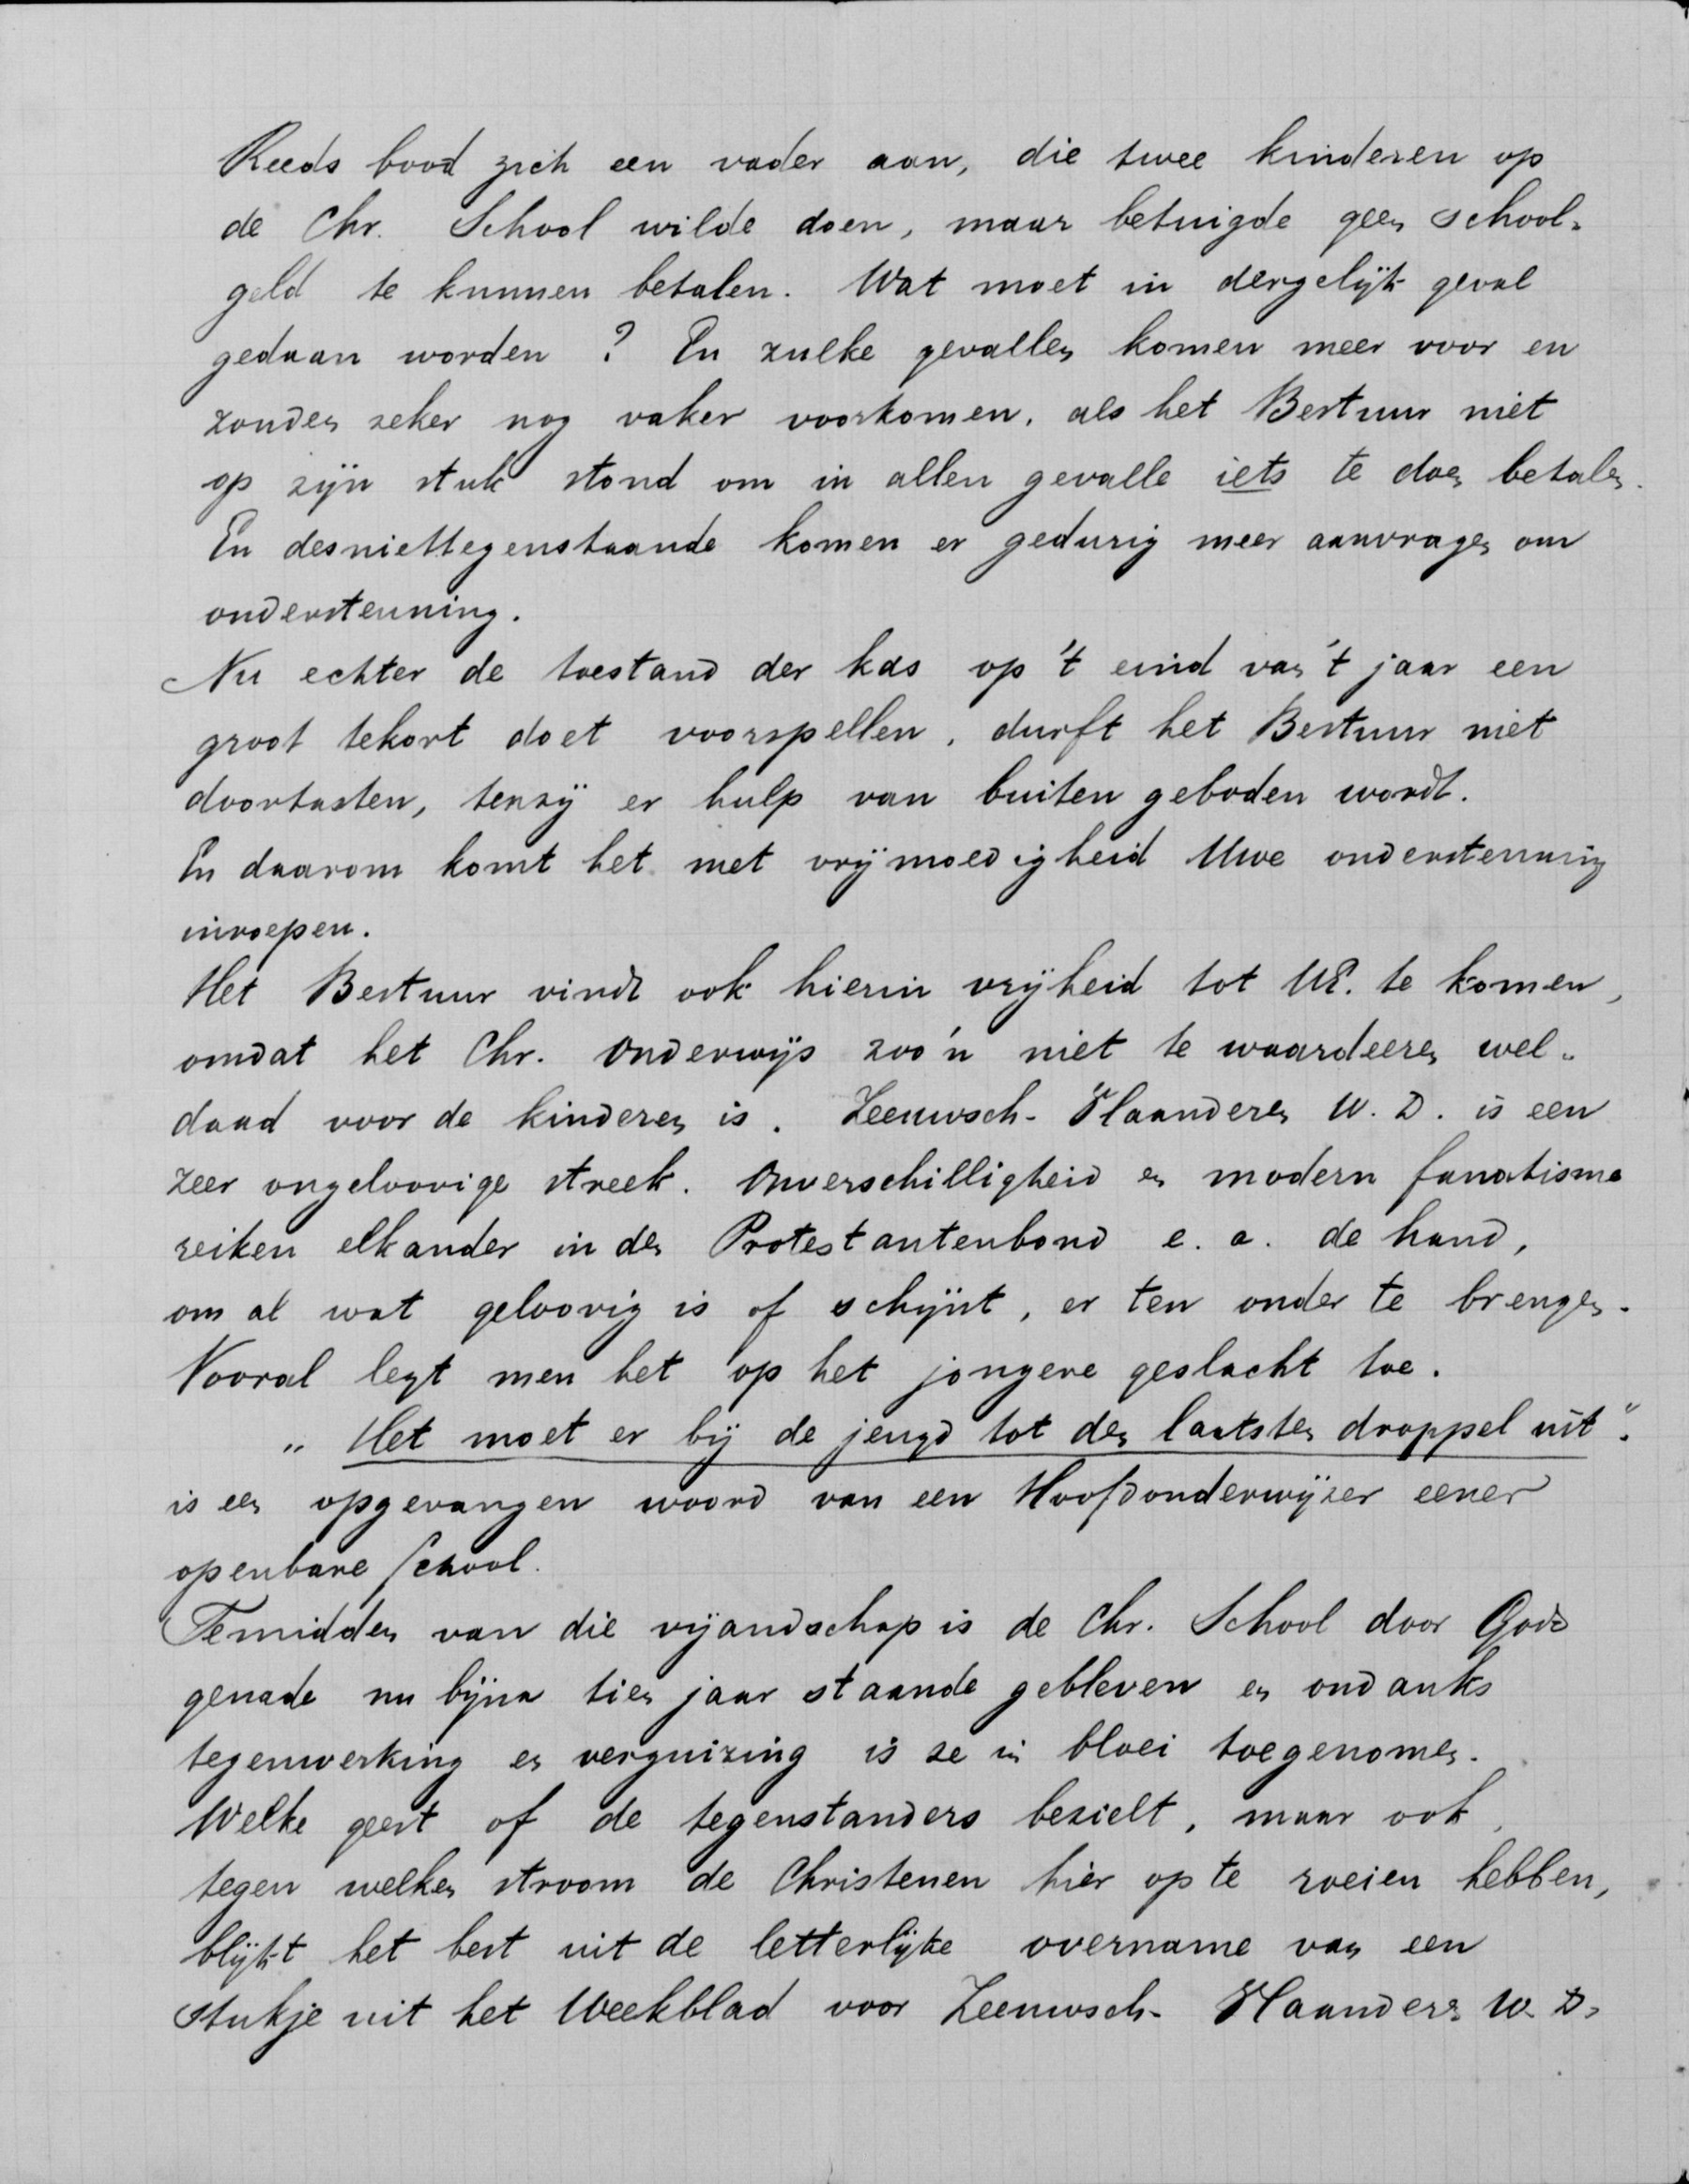 Reeds bood zich een vader aan, die twee kinderen op
de Chr. School wilde doen, maar betuigde geen school-
geld te kunnen betalen. Wat moet in dergelijk geval
gedaan worden? En zulke gevallen komen meer voor en
zouden zeker nog vaker voorkomen, als het Bestuur niet
op zijn stuk stond om in allen gevalle iets te doen betalen.
En desniettegenstaande komen er gedurig meer aanvragen om
ondersteuning.
Nu echter de toestand der kas op 't eind van 't jaar een
groot tekort doet voorspellen, durft het Bestuur niet
doortasten, tenzij er hulp van buiten geboden wordt.
En daarom komt het met vrijmoedigheid Uwe ondersteuning
inroepen.
Het Bestuur vindt ook hierin vrijheid tot UE. te komen,
omdat het Chr. Onderwijs zoo'n niet te waardeeren wel-
daad voor de kinderen is. Zeeuwsch-Vlaanderen W. D. is een
zeer ongeloovige streek. Onverschilligheid en modern fanatisme
reiken elkander in den Protestantenbond e. a. de hand,
om al wat geloovig is of schijnt, er ten onder te brengen.
Vooral legt men het op het jongere geslacht toe.
„Het moet er bij de jeugd tot den laatsten droppel uit".
is een opgevangen woord van een Hoofdonderwijzer eener
openbare School.
Temidden van die vijandschap is de Chr. School door Gods
genade nu bijna tien jaar staande gebleven en ondanks
tegenwerking en verguizing is ze in bloei toegenomen.
Welke geest of de tegenstanders bezielt, maar ook
tegen welken stroom de Christenen hier op te roeien hebben,
blijkt het best uit de letterlijke overname van een
stukje uit het Weekblad voor Zeeuwsch-Vlaanderen W. D.